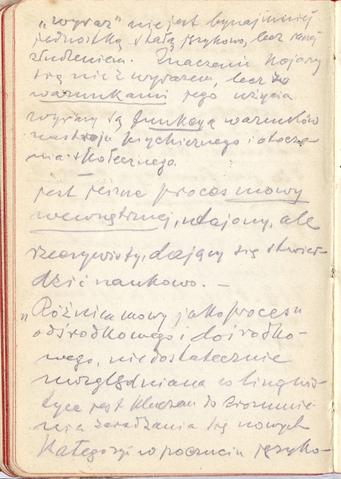 „wyraz” nie jest bynajmniej
jednostką stałą językowo, lecz raczej
złudzeniem. Znaczenie kojarzy
się nie z wyrazem, lecz z
warunkami jego użycia
wyrazy są funkcją warunków
nastroju psychicznego i otocze-
nia społecznego.
jest jeszcze proces mowy
wewnętrznej, utajony, ale
rzeczywisty, dający się stwier-
dzić naukowo. –
„Różnica mowy jako procesu
odśrodkowego i dośrodko-
wego, niedostatecznie
uwzględniana w lingwis-
tyce jest kluczem do zrozumie-
nia zaradzania się nowych
kategoryj w poczuciu języko-